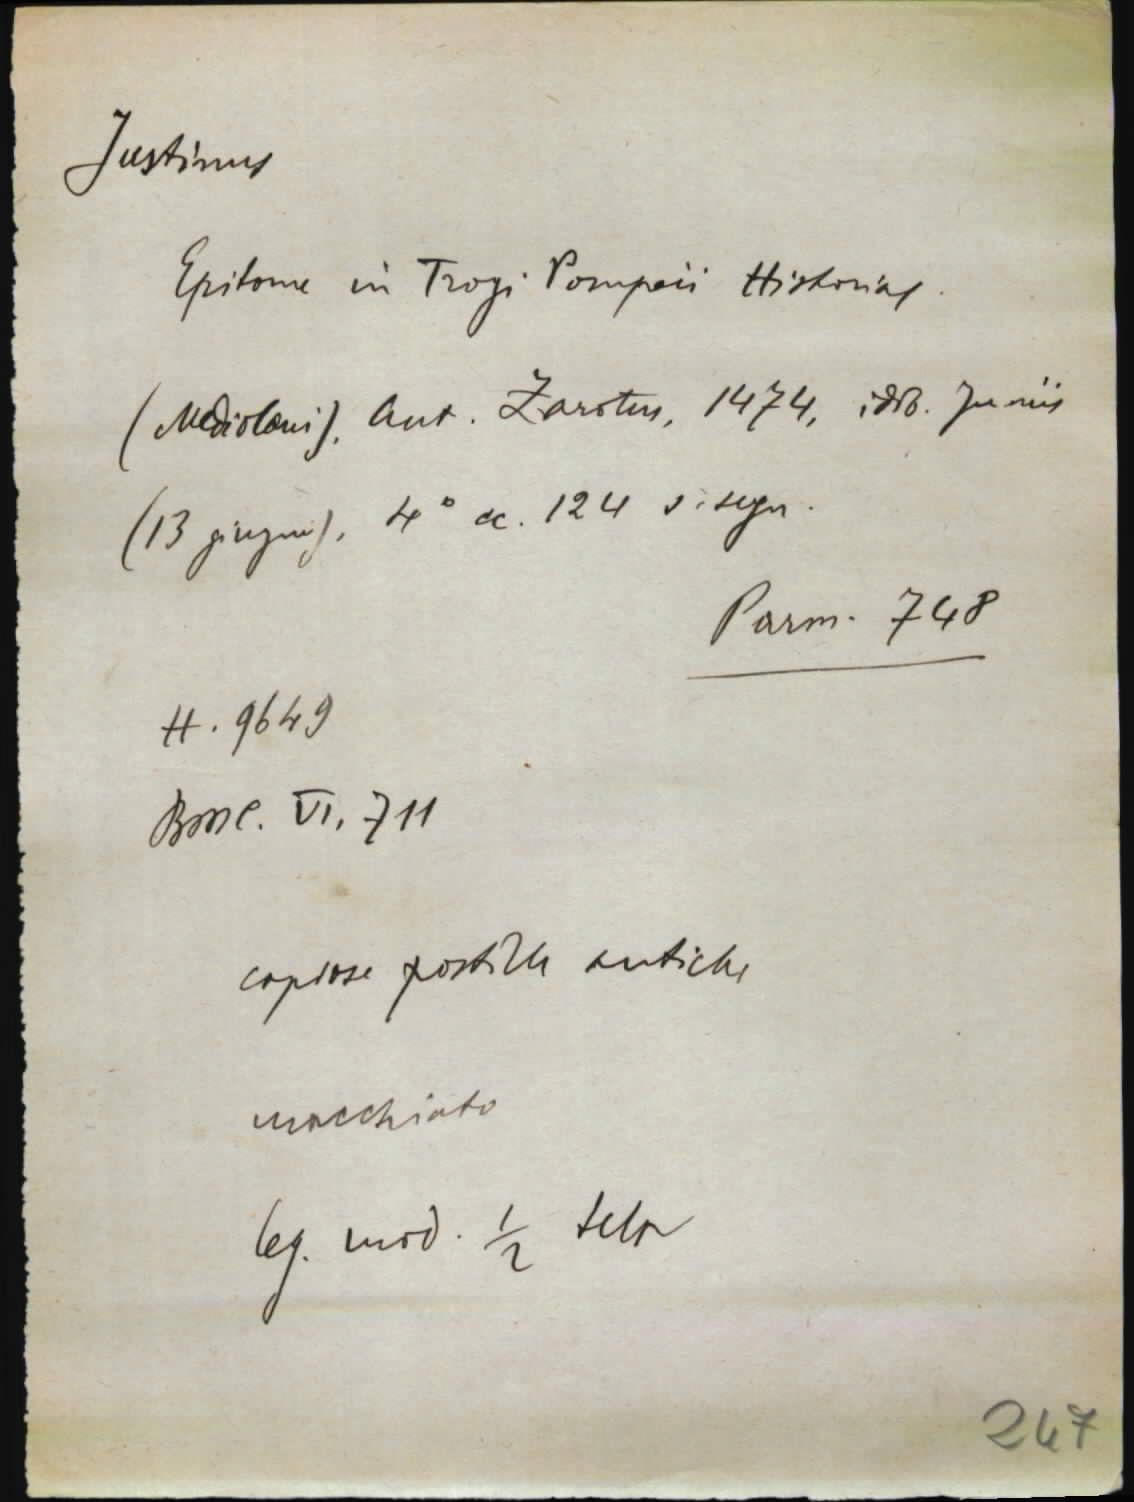 Justinus
Epitome in Trogi Pompeii Historias.
(Mediolani), Ant. Zarotus, 1474, idib. Juniis
(13 giugno), 4° cc. 124 s. segn.
Parm. 748
H. 9649
BMC. VI, 711
copiose postille antiche
macchiato
leg. mod. ½ tela
247